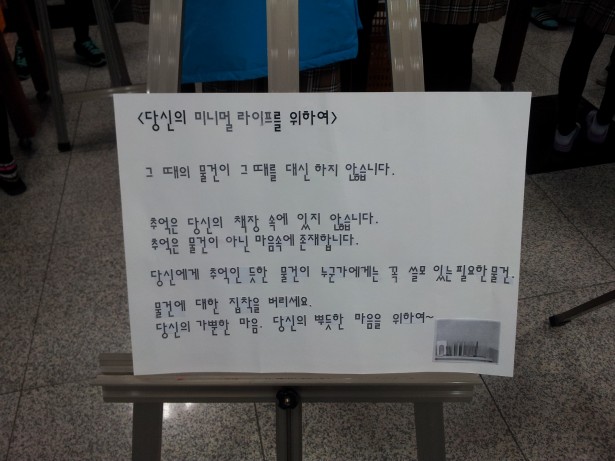 <당신의 미니멀 라이프를 위하여>
그 때의 물건이 그 때를 대신 하지 않습니다.
추억은 당신의 책장 속에 있지 않습니다.
추억은 물건이 아닌 마음속에 존재합니다.
당신에게 추억인 듯한 물건이 누군가에게는 꼭 쓸모 있는 필요한 물건.
물건에 대한 집착을 버리세요.
당신의 가뿐한 마음. 당신의 뿌듯한 마음을 위하여~